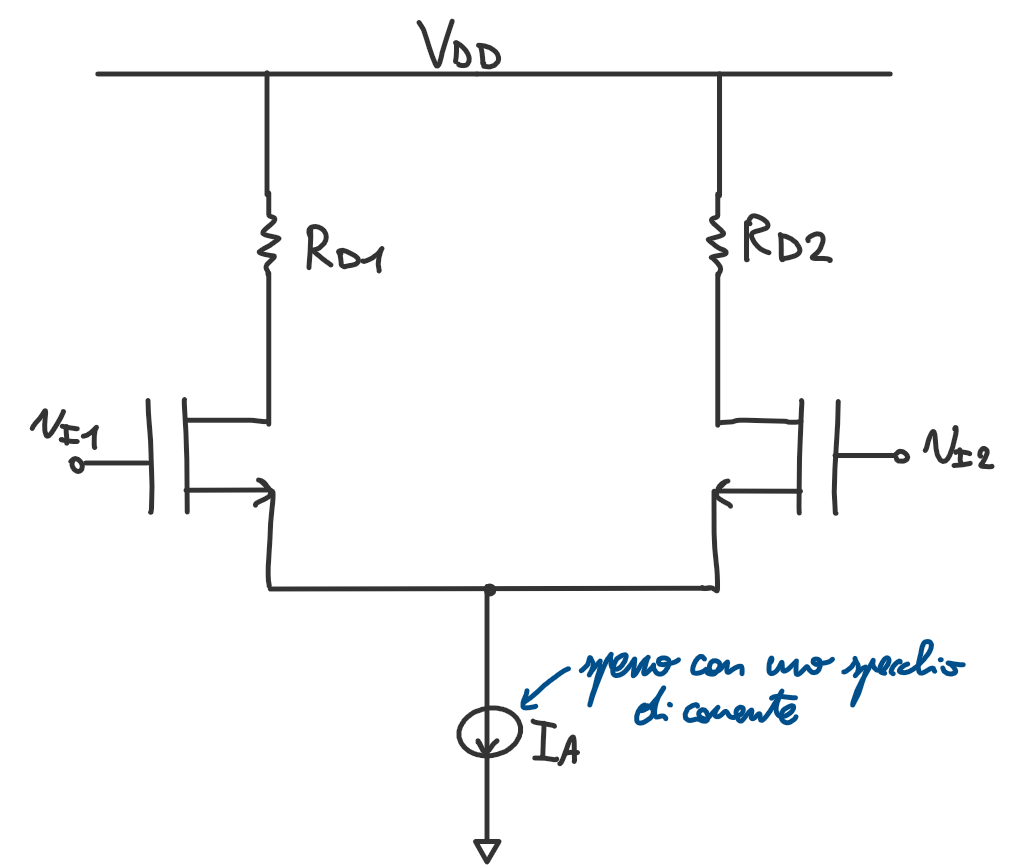 VDD
RD1
RD2
vI1
vI2
spesso con uno specchio
di corrente
IA